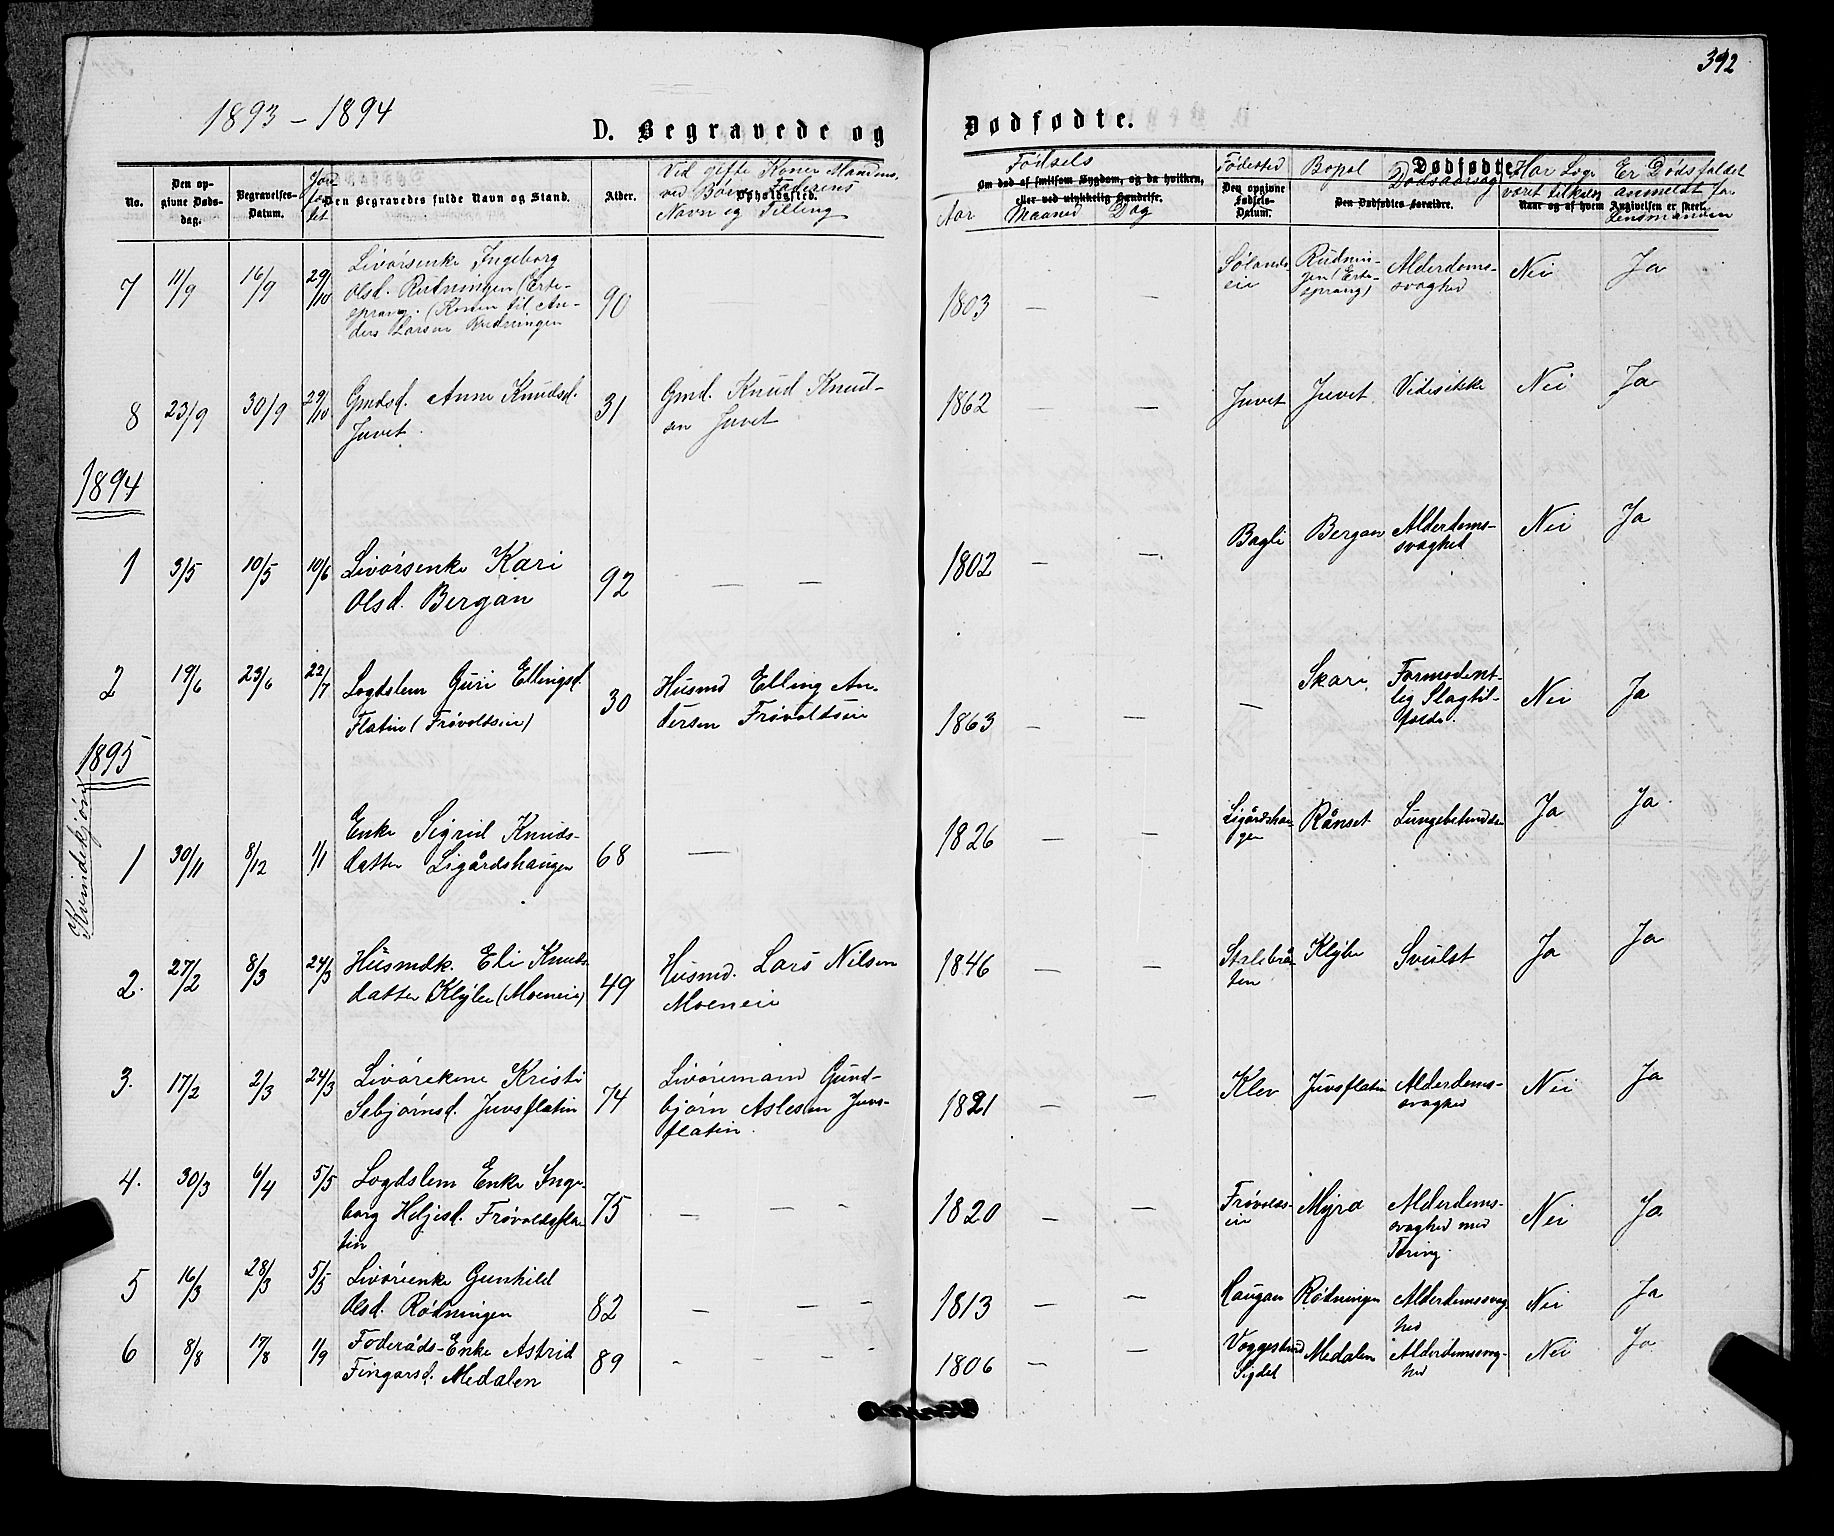 392
1893 - 1894
D. Begravede og Dødfødte.
No.
Den opgivne Dødsdag.
Begravelses-Datum.
Jordfæstet
Den Begravedes fulde Navn og Stand.
Alder.
Opholdssted.
Ved gifte Koner Mandens, ved Børn Faderens Navn og Stilling
Om død af smitsom Sygdom, og da hvilken, eller ved ulykkelig Hændelse.
Fødsels
Aar Maaned Dag
Fødested
Den opgivne Fødsels-Datum.
Bopæl
Den Dødfødtes Forældre.
Dødfødte.
Dødsaarsag
Har Læge vært tilkaldt
Naar og af hvem Angivelsen er skeet.
Er Dødsfaldet anmeldt for Lensmanden
7 11/9 16/9 29/10 Livørsenke Ingeborg Olsd. Rudningen (Erte-sprang. (Konen til An-ders Larsen Rudningen 90 1803 — — Sølands eie Rudnin-gen (Erte-sprang) Alderdoms-svaghed Nei Ja
8 23/9 30/9 29/10 Gmdsd. Anne Knudsd. Juvet. 31 Gmd. Knud Knud-sen Juvet 1862 — — Juvet Juvet. Vides ikke Nei Ja
1894
1 3/5 10/5 10/6 Livørsenke Kari Olsd. Bergan 92 — — 1802 — — Bagli Bergan Alderdoms-svaghet Nei Ja
2 19/6 23/6 22/7 Lægdslem Guri Ellingsd. Flatin (Frøvoldseie) 30 Husmd Elling An-dersen Frøvoldseie 1863 — — — Skari. Formodent-lig Slagtil-fælde. Nei Ja
1895
Kvindekjøn
1 30/11 8/12 1/1 Enke Sigrid Knuds-datter Ligårdshaugen 68 — 1826 — — Ligårdshau-gen Rånset Lungebetændelse Ja Ja
2. 27/2 8/3 24/3 Husmdk. Eli Knuds-datter Kløbe (Moeneie) 49 Husmd. Lars Nilsen Moeneie 1846 — — Stalsbrå-ten Kløbe Svulst Ja Ja
3. 17/2 2/3 24/3 Livørekone Kristi Sebjørnsd. Juvsflatin 74 Livøremand Gund-bjørn Aslesen Juvs-flatin. 1821 — — Klev Juvsflatin Alderdoms-svaghed Nei Ja
4. 30/3 6/4 5/5 Lægdslem Enke Inge-borg Heljesd. Frøvoldsfla-tin 75 — — — 1820 — — Frøvolds-eie Myra Alderdoms-svaghed med Tæring. Nei Ja
5 16/3 28/3 5/5 Livørienke Gunhild Olsd. Rødningen 82 — — — 1813 — — Haugan Rødningen Alderdomssvag-hed Nei Ja
6 8/8 17/8 1/9 Føderåds-Enke Astrid Fingarsd. Medalen 89 - - - 1806 — — Voggestad Sigdal Medalen Alderdomssvag-hed Nei Ja